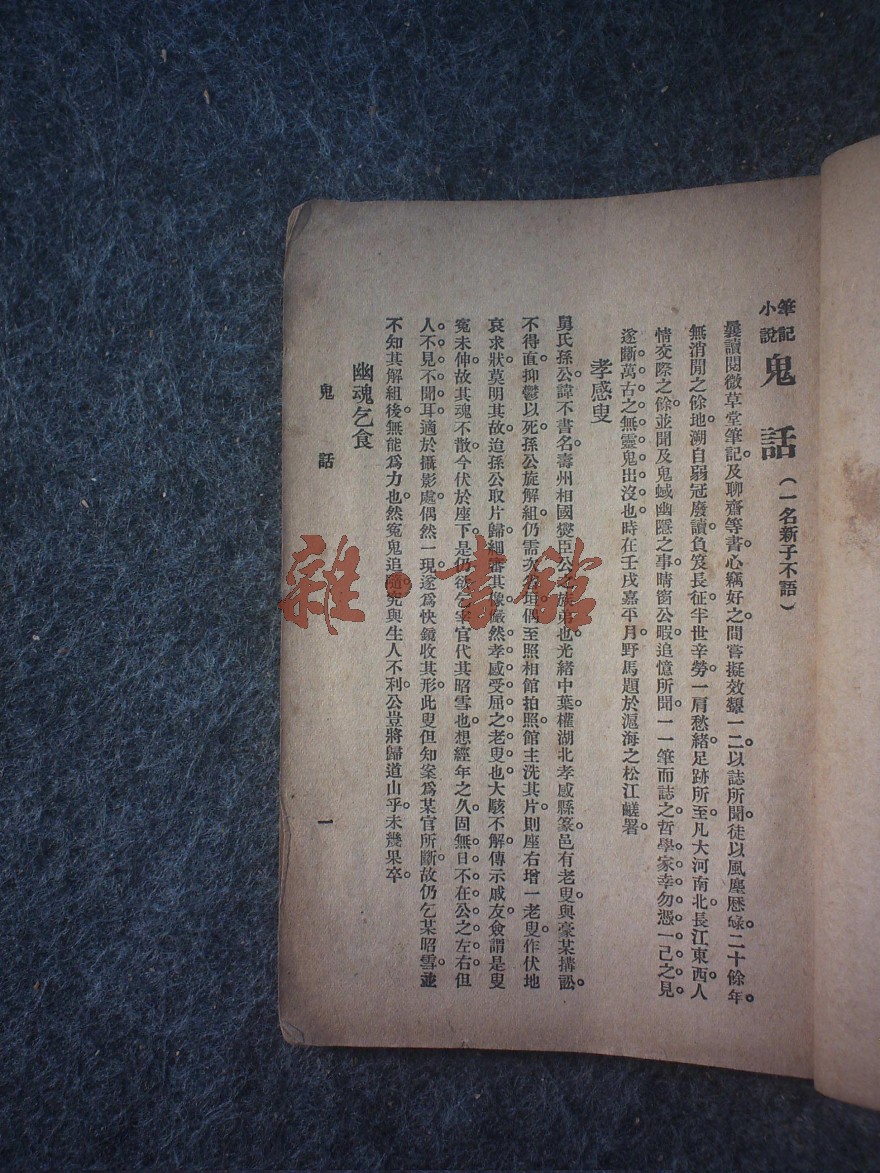 筆記小說 鬼話 （一名新子不語）
曩讀閱微草堂筆記及聊齋等書。心竊好之。間嘗擬效顰一二。以誌所聞。徒以風塵歷碌。二十餘年。
無消閒之餘地。溯自弱冠廢讀。負笈長征。半世辛勞。一肩愁緒。足跡所至。凡大河南北。長江東西。人
情交際之餘。並聞及鬼蜮幽隱之事。晴窗公暇。追憶所聞。一一筆而誌之。哲學家幸勿憑一己之見。
遂斷萬古之無靈鬼出沒也。時在壬戌嘉平月野馬題於滬海之松江鹺署。
孝感叟
舅氏孫公。諱不書名。壽州相國燮臣公之族弟也。光緒中葉。權湖北孝感縣篆。邑有老叟。與豪某搆訟。
不得直。抑鬱以死。孫公旋解組。仍需次 垣。偶至照相館拍照。館主洗其片。則座右增一老叟。作伏地
哀求狀。莫明其故。迨孫公取片歸。細審其像。儼然孝感受屈之老叟也。大駭不解。傳示戚友。僉謂是叟
冤未伸。故其魂不散。今伏於座下。是仍欲乞宰官代其昭雪也。想經年之久。固無日不在公之左右。但
人不見不聞耳。適於攝影處偶然一現。遂爲快鏡收其形。此叟但知案爲某官所斷。故仍乞某昭雪。並
不知其解組後。無能爲力也。然冤鬼追隨。究與生人不利。公豈將歸道山乎。未幾果卒。
幽魂乞食
鬼話
一
雜·書館